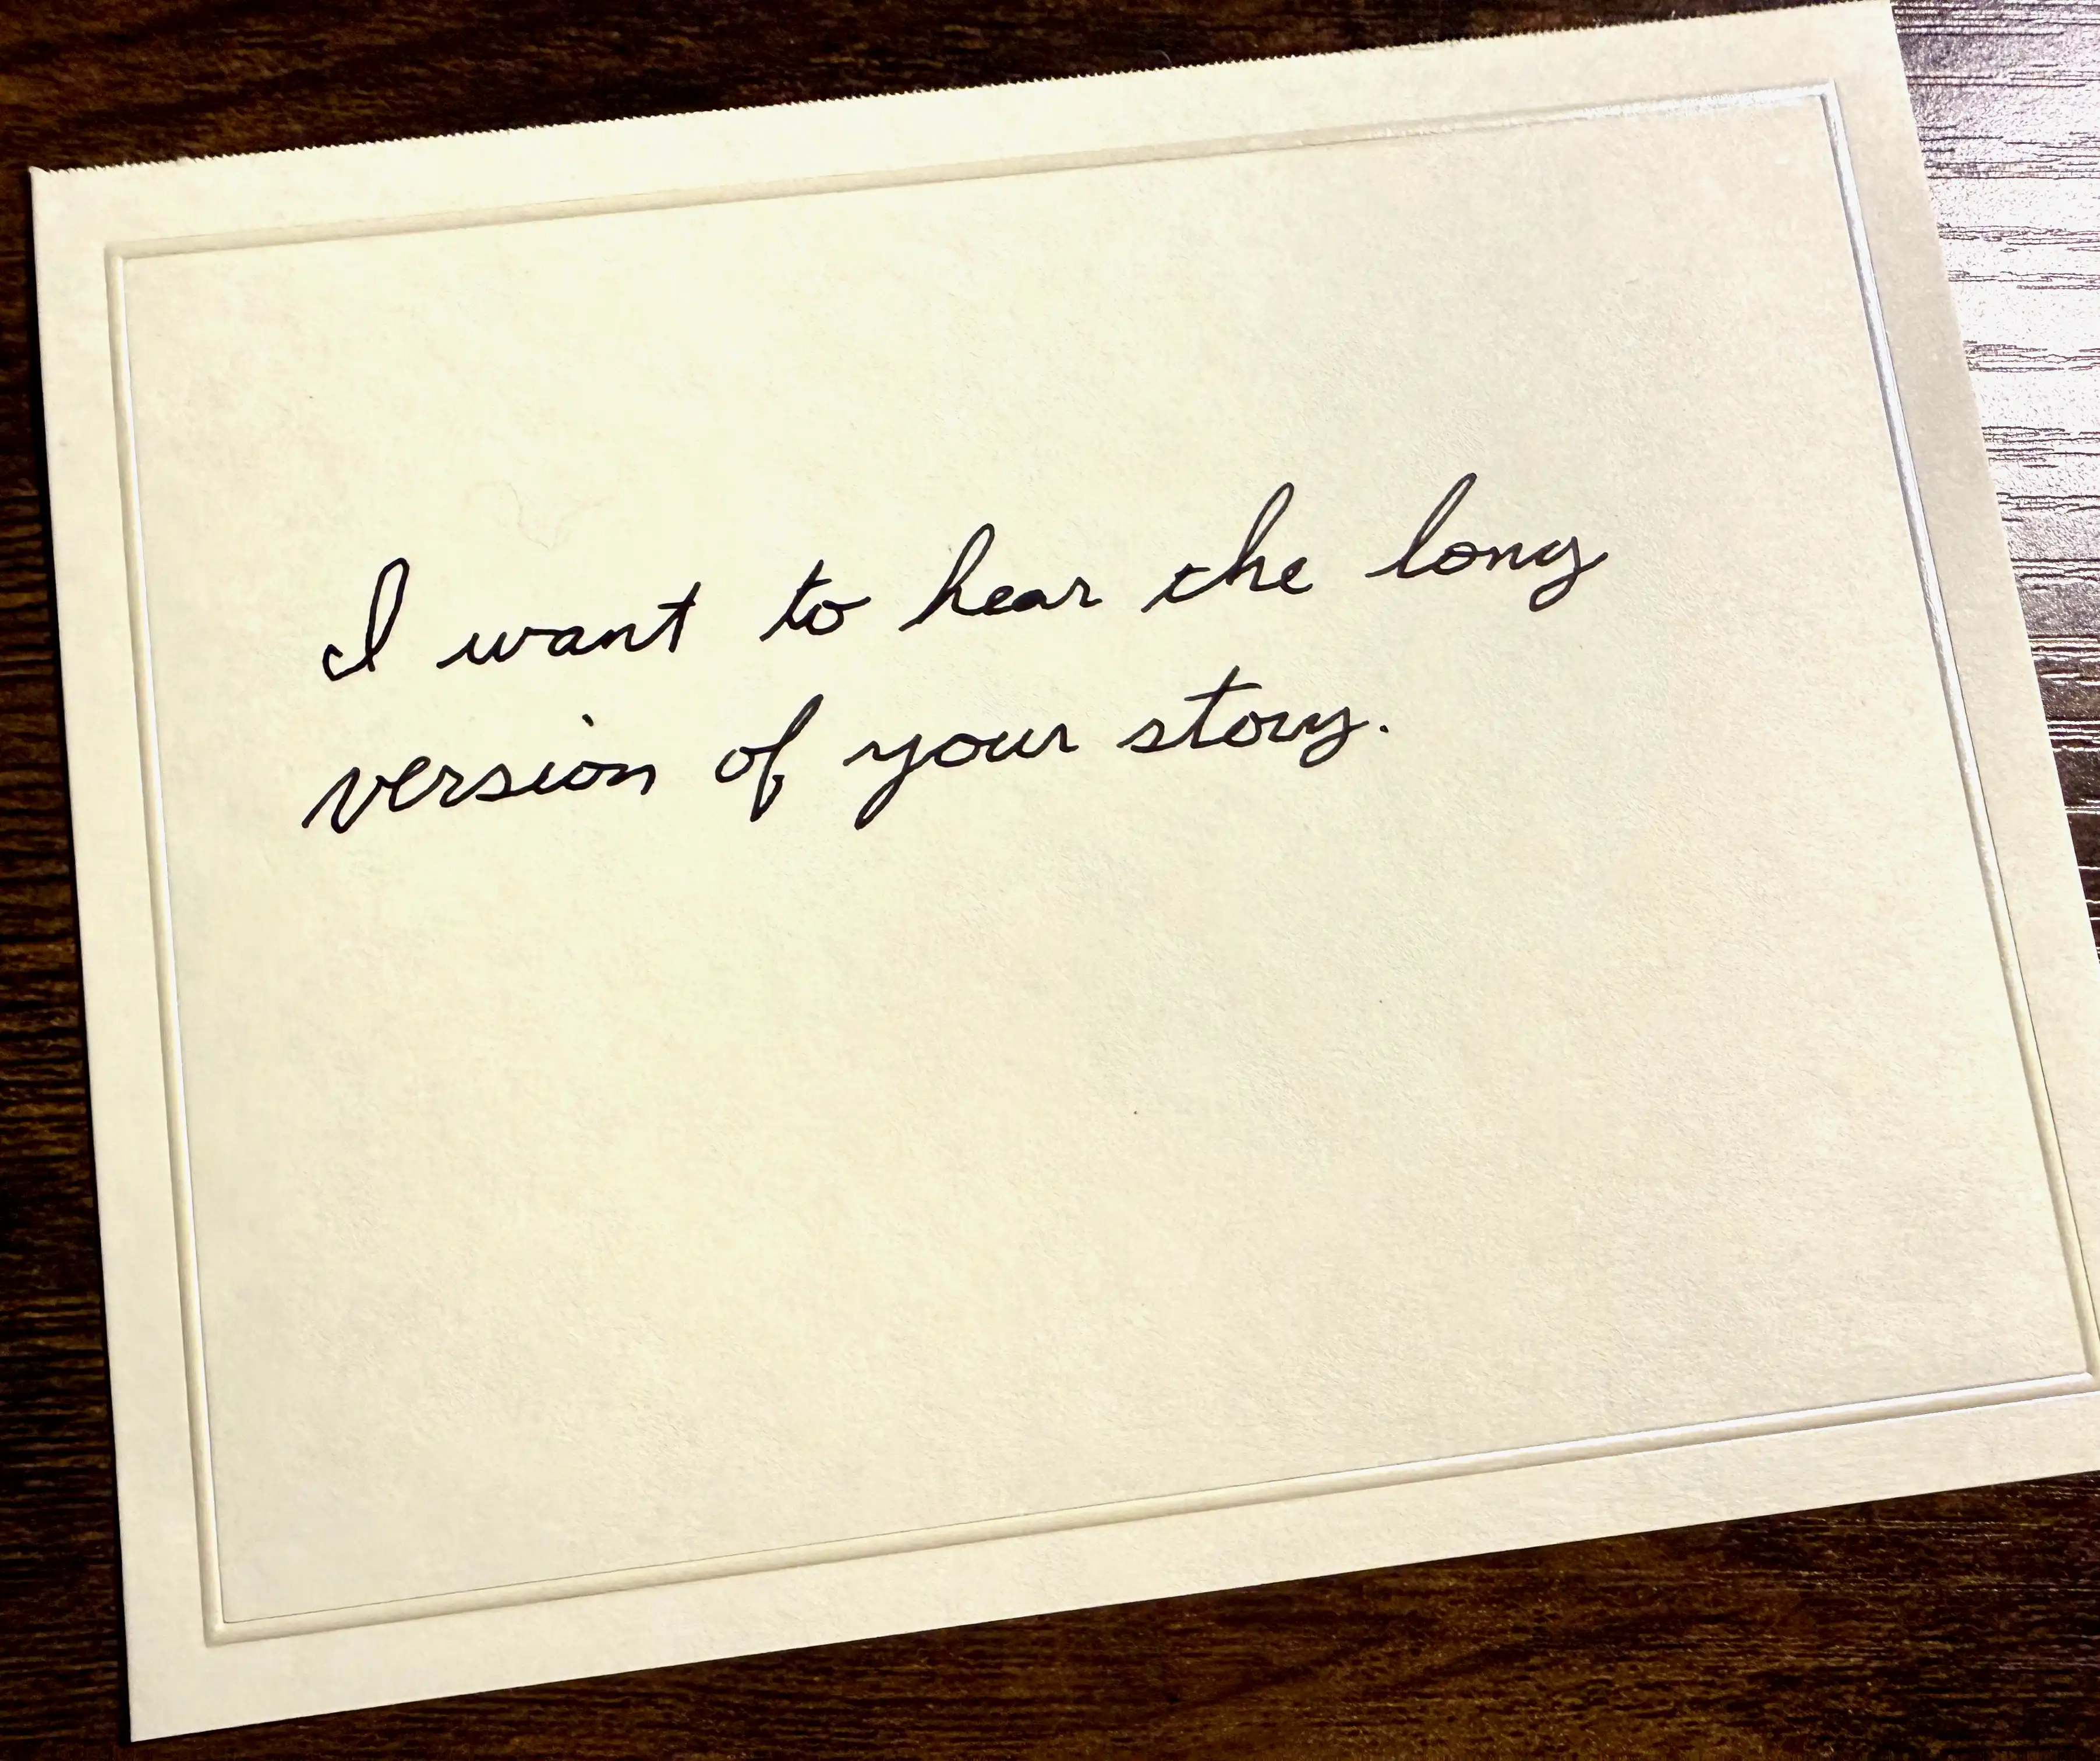 I want to hear the long
version of your story.